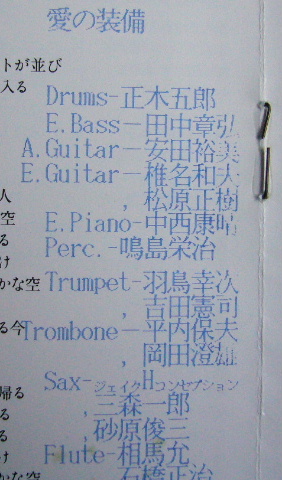 愛の装備
トが並び
入る
Drums-正木五郎
E.Bass-田中章弘
A.Guitar-安田裕美
E.Guitar-椎名和夫
人
,松原正樹
空
E.Piano-中西康晴
る
Perc.-鳴島栄治
け
かな空
Trumpet-羽鳥幸次
,吉田憲司
る今
Trombone-平内保夫
,岡田澄雄
Sax-ジェイクHコンセプション
帰る
,三森一郎
る
,砂原俊三
る
Flute-相馬充
け
かな空
,石橋正治